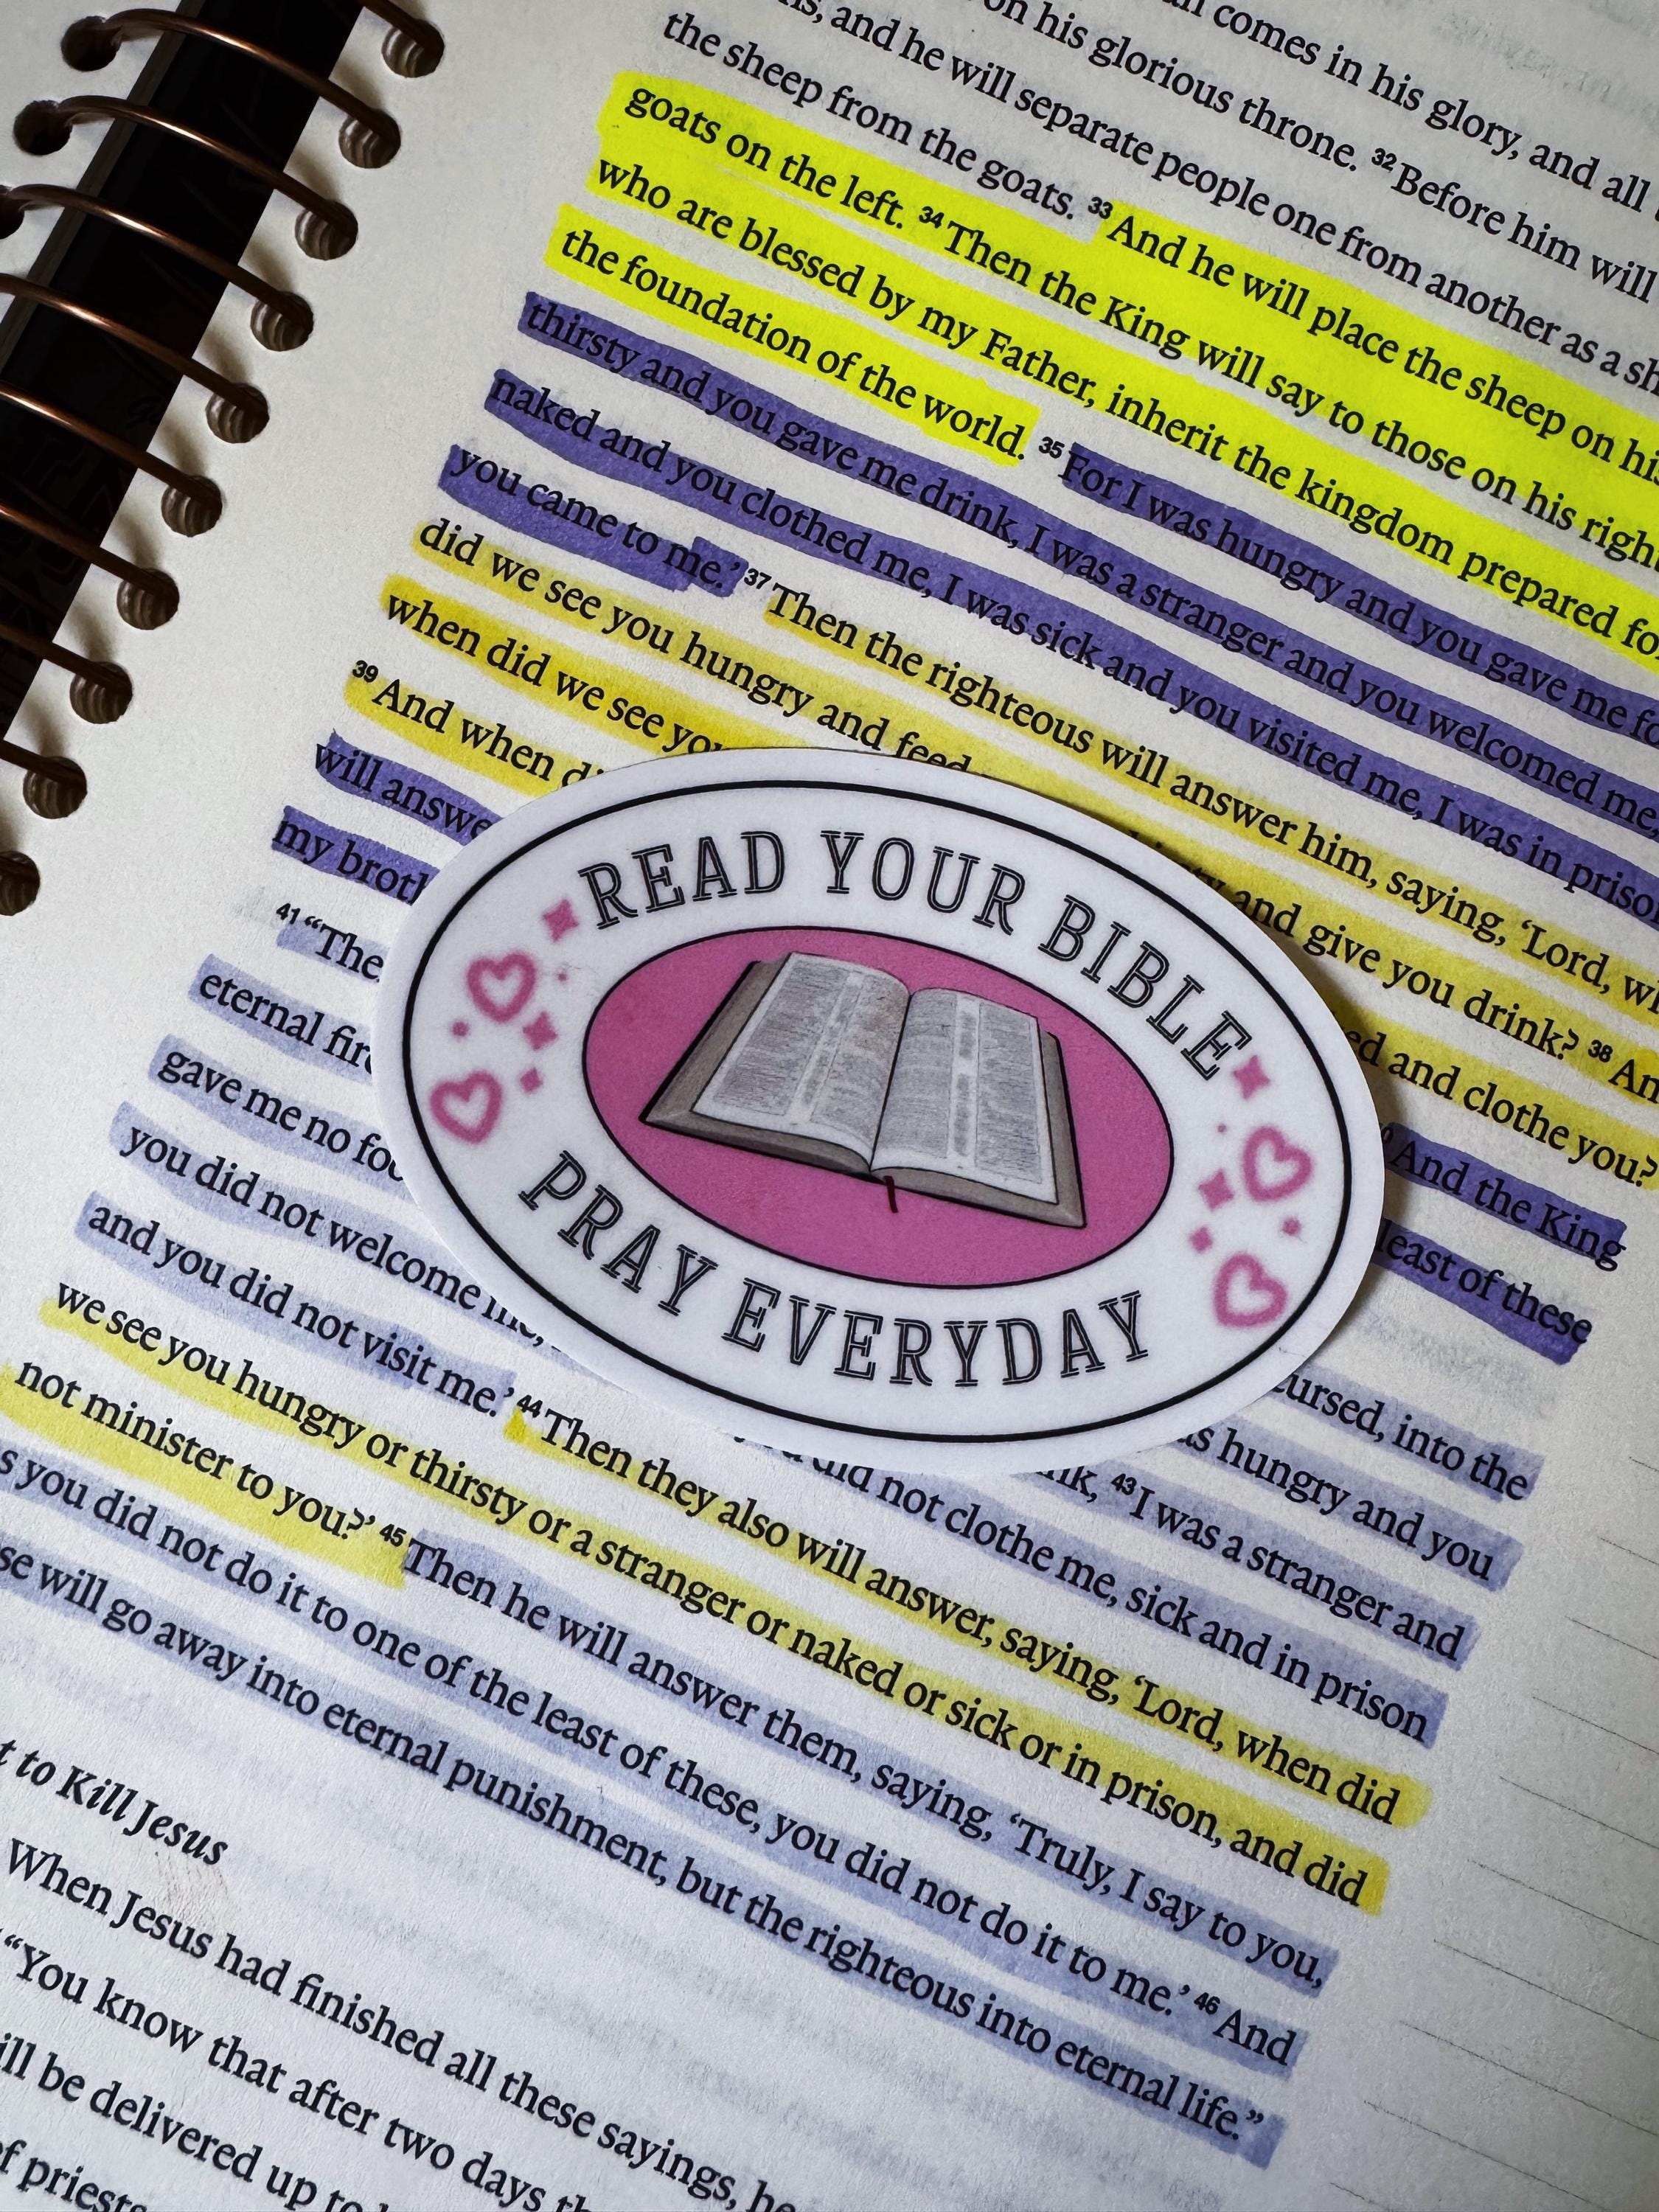 comes in his glory, and all
on his glorious throne. 32 Before him will
and he will separate people one from another as a
the sheep from the goats. 33 And he will place the sheep on his
goats on the left. 34 Then the King will say to those on his right
who are blessed by my Father, inherit the kingdom prepared
the foundation of the world. 35 For I was hungry and you gave me
thirsty and you gave me drink, I was a stranger and you welcomed me,
naked and you clothed me, I was sick and you visited me, I was in prison
you came to me.’ 37 Then the righteous will answer him, saying, ‘Lord,
did we see you hungry and feed and give you drink? 38
when did we see you and clothe you?
39 And when
will And the King
my least of these
41 into the
eternal hungry and you
gave me no 43 I was a stranger and
you did not welcome me, did not clothe me, sick and in prison
and you did not visit me.’ 44 Then they also will answer, saying, ‘Lord, when did
we see you hungry or thirsty or a stranger or naked or sick or in prison, and did
not minister to you?’ 45 Then he will answer them, saying, ‘Truly, I say to you,
you did not do it to one of the least of these, you did not do it to me.’ 46 And
will go away into eternal punishment, but the righteous into eternal life.”
READ YOUR BIBLE
PRAY EVERYDAY
to Kill Jesus
When Jesus had finished all these sayings, he
“You know that after two days
be delivered up to